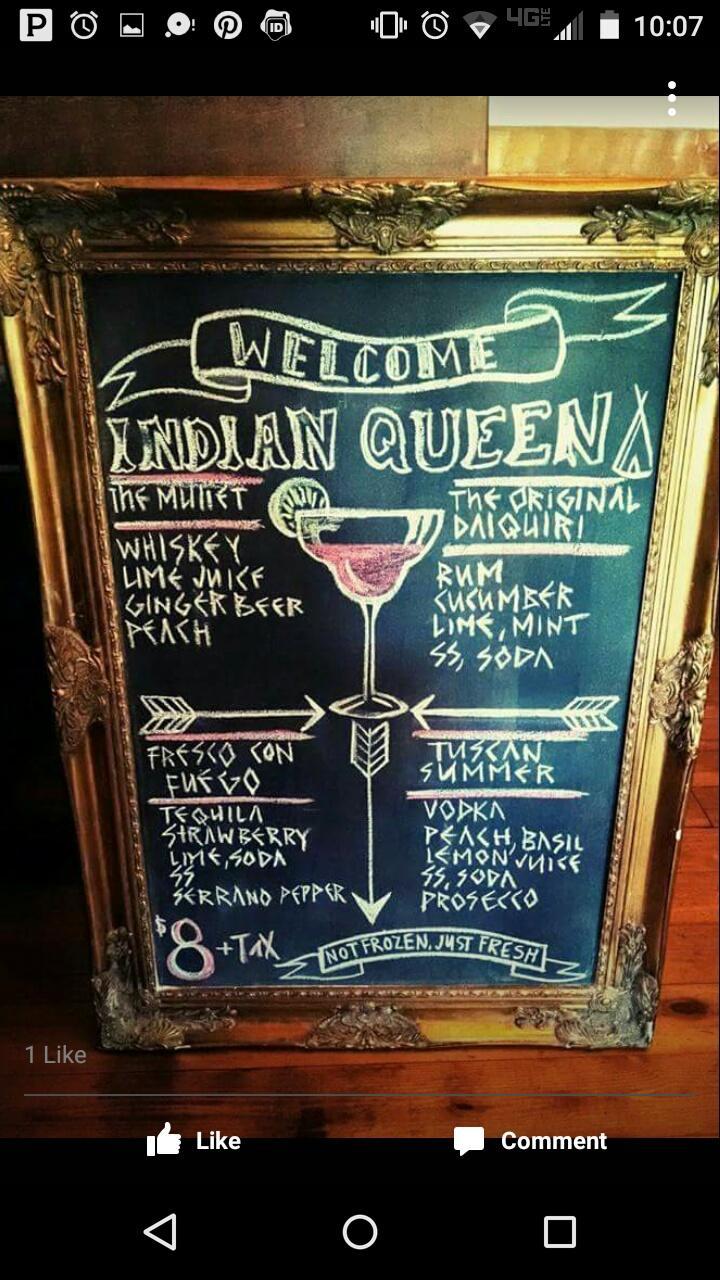 10:07
4G LTE
WELCOME
INDIAN QUEEN
The MullET
WHISKEY
LIME JUICE
GINGER BEER
PEACH
THE ORIGINAL
DAIQUIRI
RUM
CUCUMBER
LIME, MINT
SS, SODA
FRESCO CON
FUEGO
TEQUILA
STRAWBERRY
LIME, SODA
SS
SERRANO PEPPER
TUSCAN
SUMMER
VODKA
PEACH, BASIL
LEMON JUICE
SS, SODA
PROSECCO
$8 + TAX
NOT FROZEN, JUST FRESH
1 Like
Like
Comment